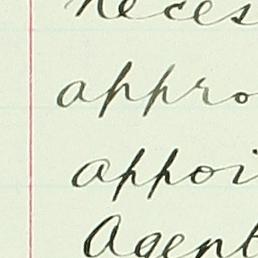 neces
appro
appoi
Agent